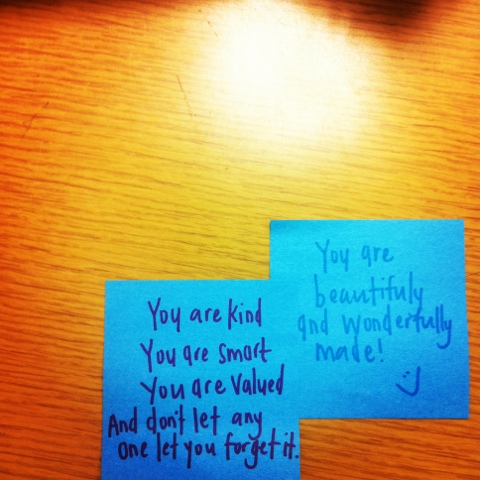 You are kind
You are smart
You are valued
And don't let any
one let you forget it.
You are
beautifuly
and wonderfully
made!
:)